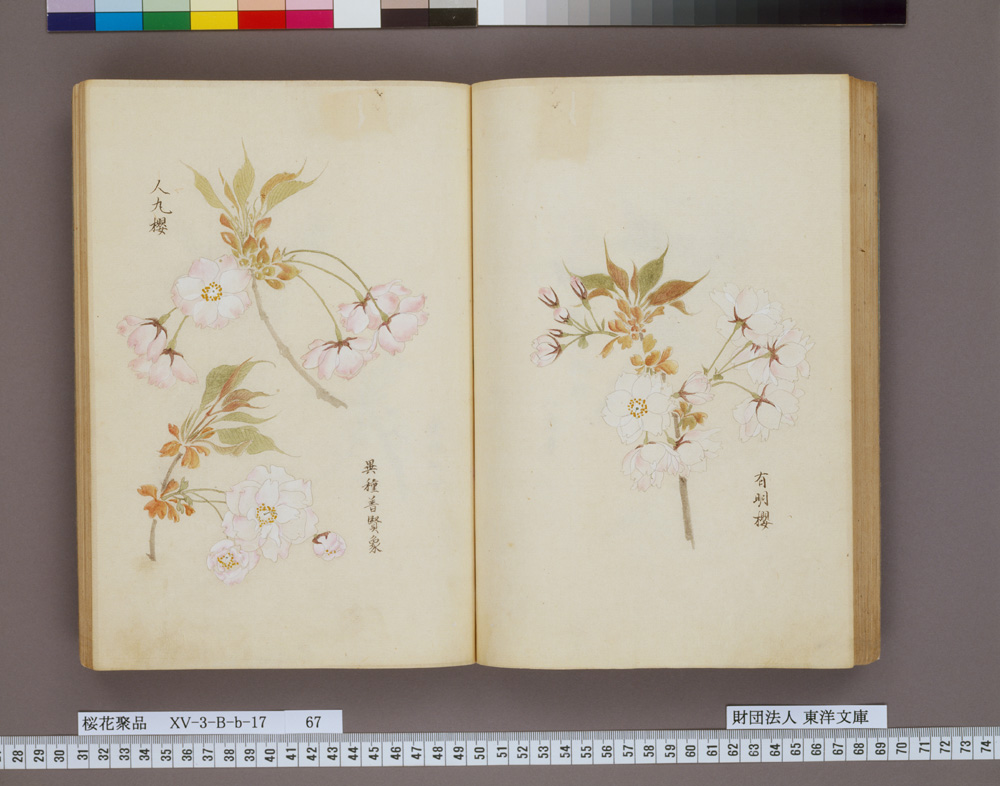 有明櫻
人九櫻
異種普賢象
桜花聚品 XV-3-B-b-17 67
財団法人 東洋文庫
28 29 30 31 32 33 34 35 36 37 38 39 40 41 42 43 44 45 46 47 48 49 50 51 52 53 54 55 56 57 58 59 60 61 62 63 64 65 66 67 68 69 70 71 72 73 74